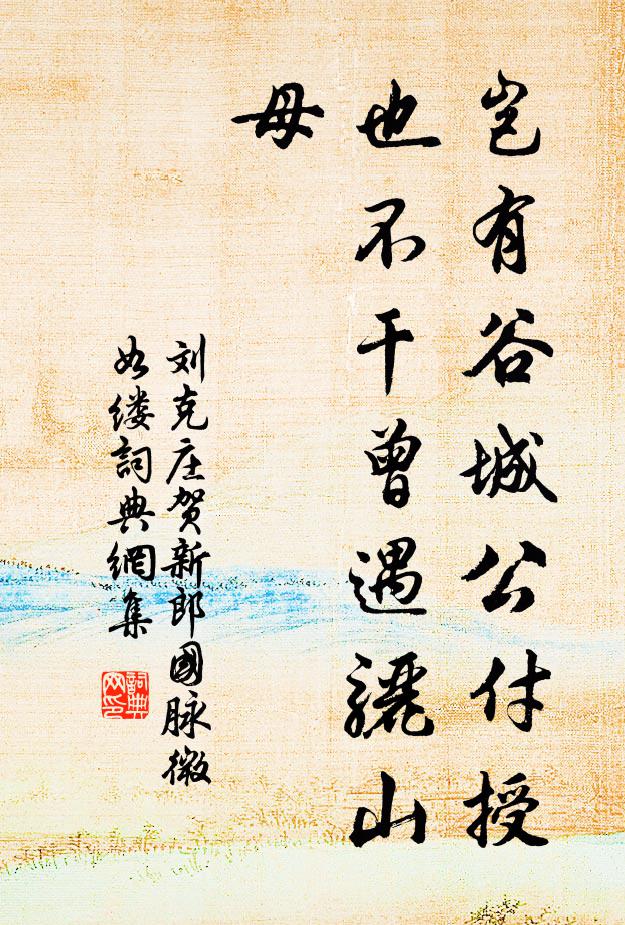 岂有谷城公付授
也不干曾遇骊山
母
刘克庄贺新郎國脉微
如缕詞典網集
詞典
网印